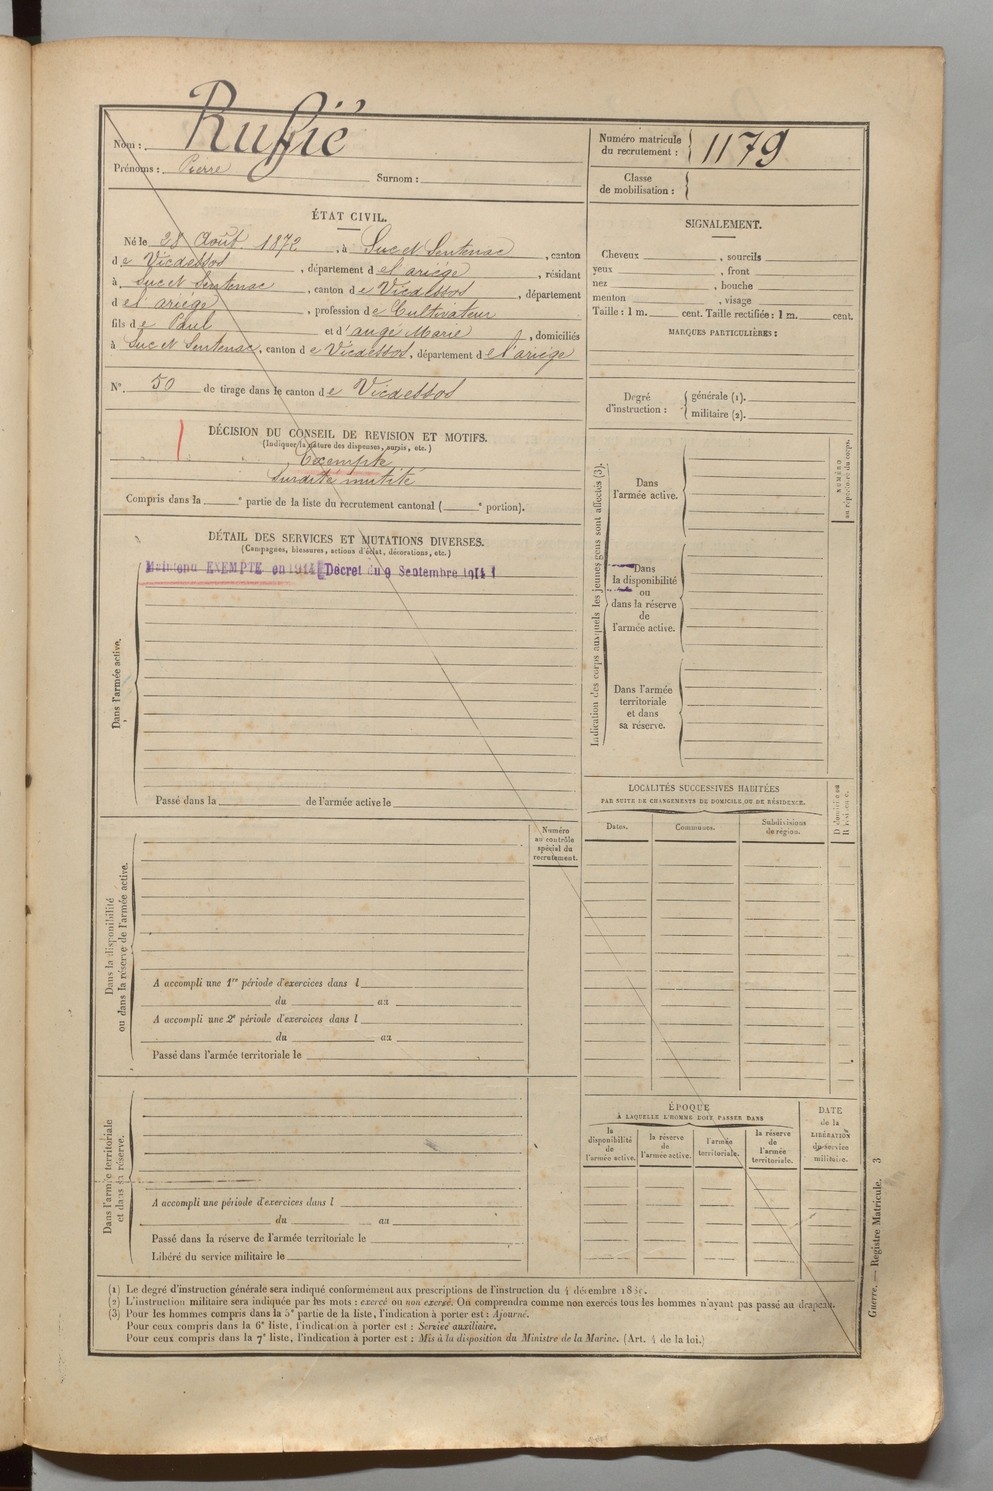 Nom : Ruffié
Prénoms : Pierre Surnom :
Numéro matricule du recrutement : 1179
Classe de mobilisation :
ÉTAT CIVIL.
Né le 28 Août 1872, à Suc et Sentenac, canton
de Vicdessos, département de l'ariège, résidant
à Suc et Sentenac, canton de Vicdessos, département
de l'ariège, profession de Cultivateur
fils de Paul et d'augé Marie, domiciliés
à Suc et Sentenac, canton de Vicdessos, département de l'ariège
N° 50 de tirage dans le canton de Vicdessos
SIGNALEMENT.
Cheveux , sourcils
yeux , front
nez , bouche
menton , visage
Taille : 1 m. cent. Taille rectifiée : 1 m. cent.
MARQUES PARTICULIÈRES :
Degré d'instruction : générale (1).
militaire (2).
DÉCISION DU CONSEIL DE REVISION ET MOTIFS.
(Indiquer la nature des dispenses, sursis, etc.)
Exempté
Surdité mutité
Compris dans la e partie de la liste du recrutement cantonal ( e portion).
DÉTAIL DES SERVICES ET MUTATIONS DIVERSES.
(Campagnes, blessures, actions d'éclat, décorations, etc.)
Maintenu EXEMPTE en 1914 Décret du 9 Septembre 1914
Dans l'armée active.
Passé dans la de l'armée active le
Indication des corps auxquels les jeunes gens sont affectés (3).
Dans
l'armée active.
Dans
la disponibilité
ou
dans la réserve
de
l'armée active.
Dans l'armée
territoriale
et dans
sa réserve.
NUMÉRO
au répertoire du corps.
LOCALITÉS SUCCESSIVES HABITÉES
PAR SUITE DE CHANGEMENTS DE DOMICILE OU DE RÉSIDENCE.
Dates. Communes. Subdivisions de région.
Numéro
au contrôle
spécial du
recrutement.
Dans la disponibilité
ou dans la réserve de l'armée active.
A accompli une 1re période d'exercices dans l
du au
A accompli une 2e période d'exercices dans l
du au
Passé dans l'armée territoriale le
Dans l'armée territoriale
et dans sa réserve.
A accompli une période d'exercices dans l
du au
Passé dans la réserve de l'armée territoriale le
Libéré du service militaire le
ÉPOQUE
À LAQUELLE L'HOMME DOIT PASSER DANS
la disponibilité de l'armée active.
la réserve de l'armée active.
l'armée territoriale.
la réserve de l'armée territoriale.
DATE
de la
LIBÉRATION
du service
militaire.
(1) Le degré d'instruction générale sera indiqué conformément aux prescriptions de l'instruction du 4 décembre
(2) L'instruction militaire sera indiquée par les mots : exercé ou non exercé. On comprendra comme non exercés tous les hommes n'ayant pas passé au drapeau.
(3) Pour les hommes compris dans la 5e partie de la liste, l'indication à porter est : Ajourné.
Pour ceux compris dans la 6e liste, l'indication à porter est : Service auxiliaire.
Pour ceux compris dans la 7e liste, l'indication à porter est : Mis à la disposition du Ministre de la Marine. (Art. 4 de la loi.)
Guerre. — Registre Matricule. 3